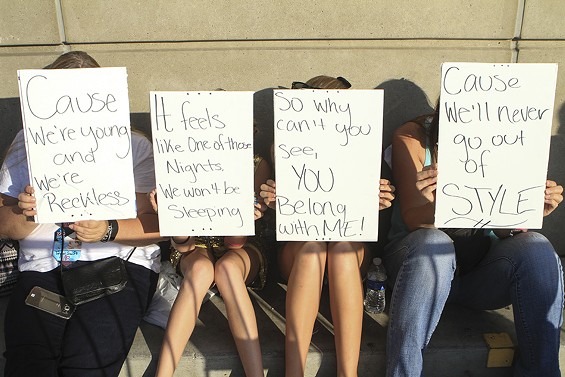 Cause
We're young
and
We're
Reckless
It feels
like One of those
Nights,
We won't be
Sleeping
So why
can't you
see,
YOU
Belong
with ME!
Cause
We'll never
go out
of
STYLE